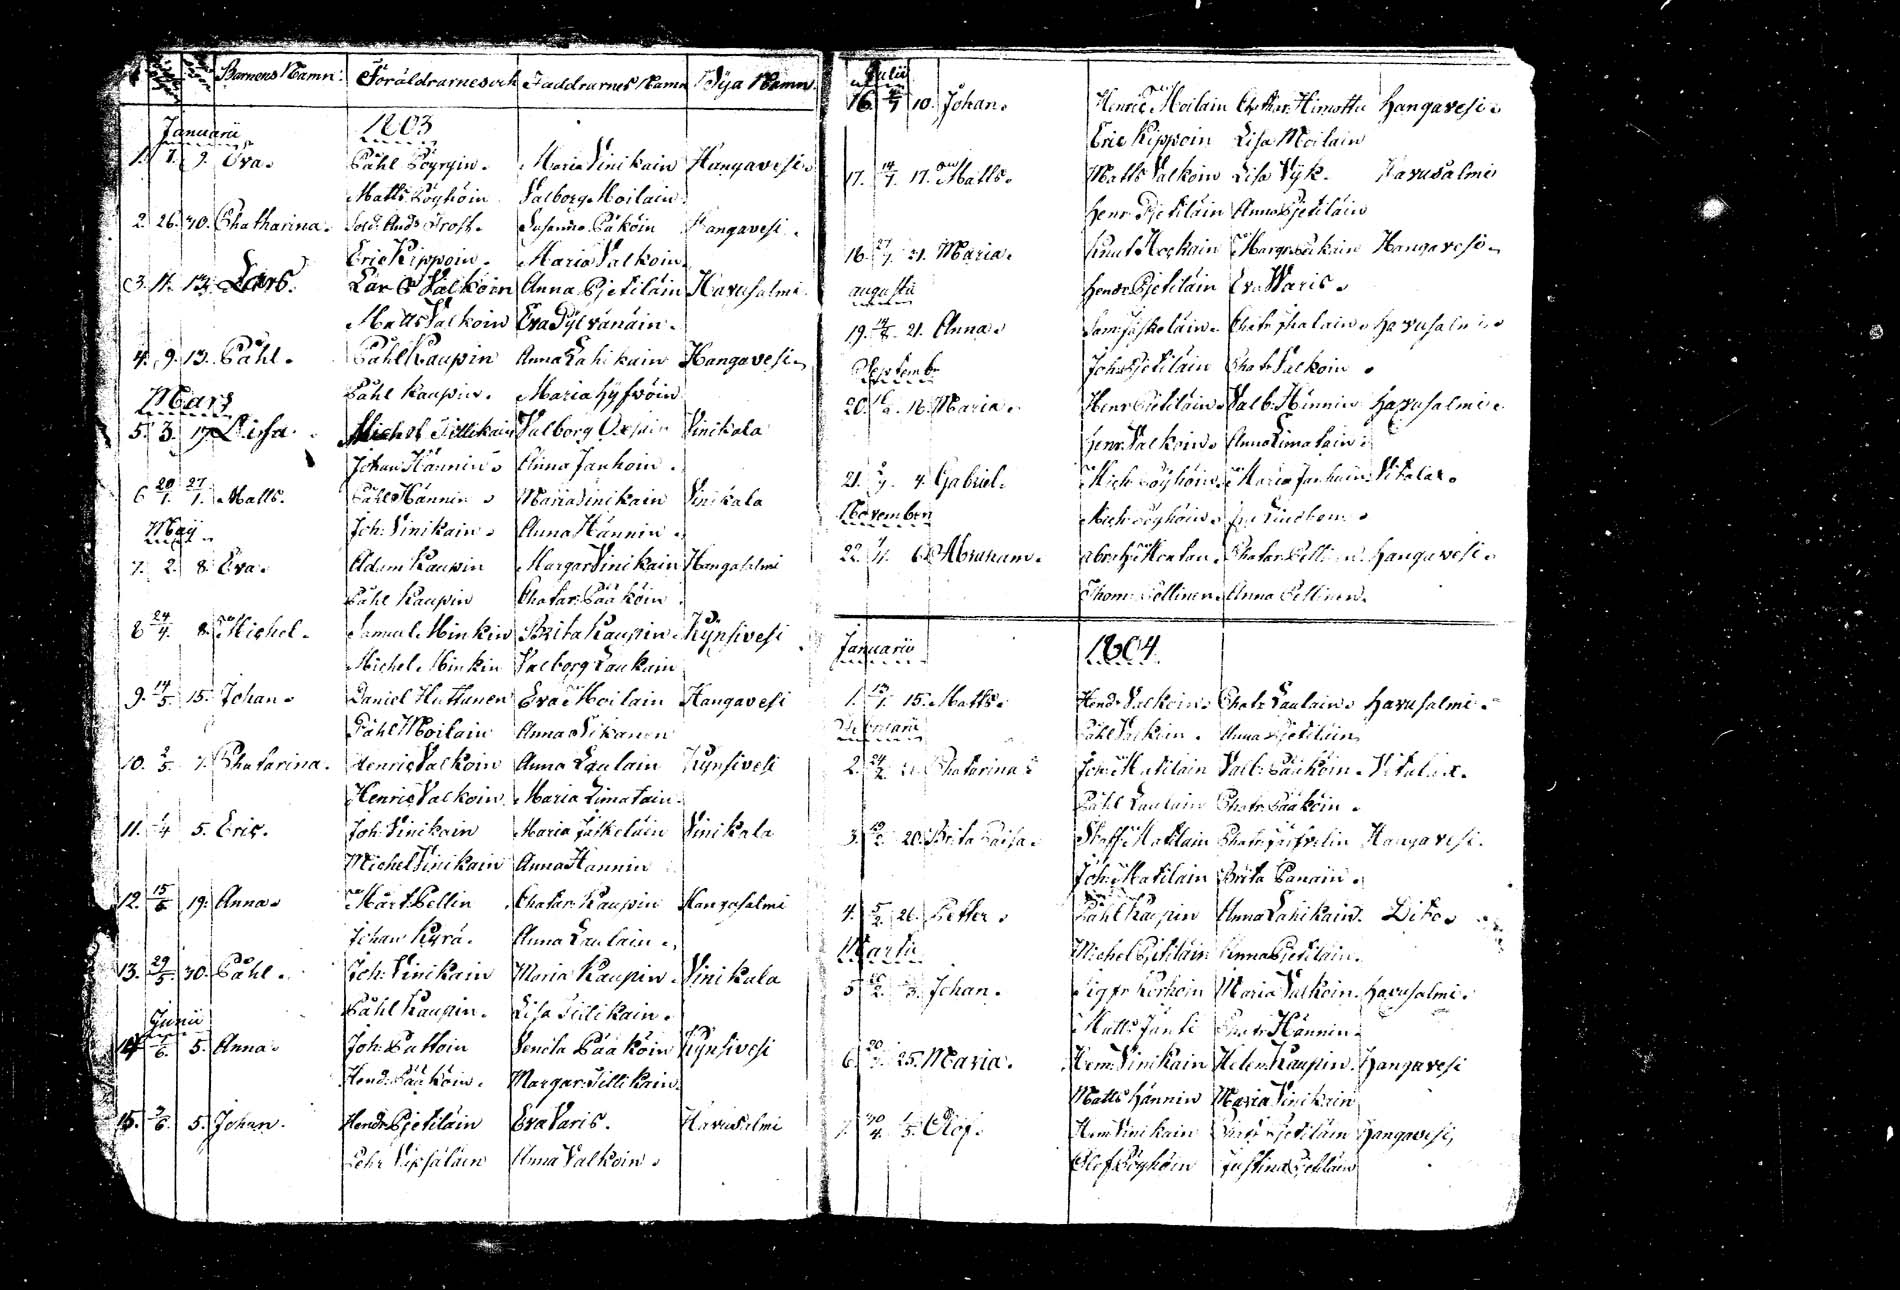 Barnens Namn. Föräldrarnes och Faddrarnes Namn Bya Namn.
Januarii 1803
1. 7. 9. Eva. Påhl Pöyryin. Maria Vinikain Hangavesi.
Matts Pöyhöin Valborg Moilain.
2. 26. 30. Chatharina. Sold. And. Frost. Susanna Påköin Hangavesi.
Eric Kippoin. Maria Valkoin.
3. 11. 13. Lars. Lars Valkoin Anna Pjetiläin Havusalmi
Matts Valkoin Eva Pylvänäin.
4. 9. 13. Påhl. Påhl Kaupin Anna Lahikain Hangavesi.
Mars Påhl Kaupin. Maria Hyfvöin
5. 3. 17. Lisa. Michel Tillikain Valborg Vinikala
Johan Hännin. Anna Janhoin.
6 20/1. 27/1. Matts. Påhl Hännin. Maria Vinikain Vinikala
May Joh: Vinikain. Anna Hännin.
7. 2. 8. Eva. Adam Kaupin Margar Vinikain Hangasalmi
Påhl Kaupin Chatar: Pääköin.
8 24/4. 8. Michel. Samuel Minkin Brita Kaupin. Kynsivesi
Michel Minkin Valborg Laukain
9. 14/5. 15. Johan. Daniel Huttunen Eva Moilain Hangavesi
Påhl Moilain Anna Sikanen
10. 2/5. 7. Chatarina. Henric Valkoin Anna Laulain Kynsivesi
Henric Valkoin. Maria Limatain.
11. 1/4 5. Eric. Joh: Vinikain Maria Jäskeläin Vinikala
Michel Vinikain Anna Hannin
12. 15/5 19. Anna. Mårt. Pellin Chatar: Kaupin Hangasalmi
Johan Kyrö. Anna Laulain.
13. 29/5. 30. Påhl. Joh: Vinikain Maria Kaupin. Vinikala
Påhl Kaupin. Lisa Tillikain.
Junii
14 /6. 5. Anna. Joh: Puttoin Vendla Pääköin Kynsivesi
Hend: Pääköin. Margar: Tillikain.
15. /6. 5. Johan. Hendr Pjetiläin Eva Varis. Havusalmi
Pehr Vepsäläin Anna Valkoin.
Julii
16. 4/7 10. Johan. Henric Moilain Chathar: Himottu Hangavesi.
Eric Kippoin Lisa Moilain
17. 14/7. 17. Matts. Matts Valkoin Lisa Vyk. Havusalmi
Henr. Pjetiläin Anna Pjetiläin
18. 27/7. 31. Maria. Knut Margr: Hangavesi.
Augusti Hendr Pjetiläin Eva Waris.
19. 14/8. 21. Anna. Sam: Jäskeläin. Chatr: Havusalmi.
Septembr Joh: Pjetiläin Chatr Valkoin.
20. 16/9. 18. Maria. Henr Pjetiläin. Valb: Hännin Havusalmi.
Henr: Valkoin. Anna Limatain.
21. 2/9. 4. Gabriel. Mich: Pöyhöin. Maria Janhuin. Vitalax.
November Mich: Pöyhöin.
22. 1/11. 6. Abraham. Abrah: Chatar: Pellinen Hangavesi.
Thom: Pellinen. Anna Pellinen.
Januarii 1804
1. 13/1. 15. Matts. Hendr Valkoin. Chatr: Laulain. Havusalmi.
Februarii Påhl Valkoin. Anna Pjetiläin
2. 24/2. Chatarina. Joh: Matilain Valb: Pääköin. Vitalax.
Påhl Laulain Chatr: Pääköin.
3. 19/2. 20. Brita Caisa. Staff: Matilain Chatr: Hangavesi.
Joh: Matilain Brita Panain.
4. 5/2 26. Petter. Påhl Kaupin Anna Lahikain. Dito.
Martii Michel Pjetiläin Anna Pjetiläin.
5 /2. Johan. Sigfr Korhoin Maria Valkoin. Havusalmi.
Matts Jänti Chatr Hännin.
6. 20/ 25. Maria. Hem: Vinikain Helen: Kaupin. Hangavesi
Matts Hännin Maria Vinikain
7. 30/4. 1/5. Olof. Hem: Vinikain Pjetiläin Hangavesi,
Olof Pöyhöin Justina Pjetiläin